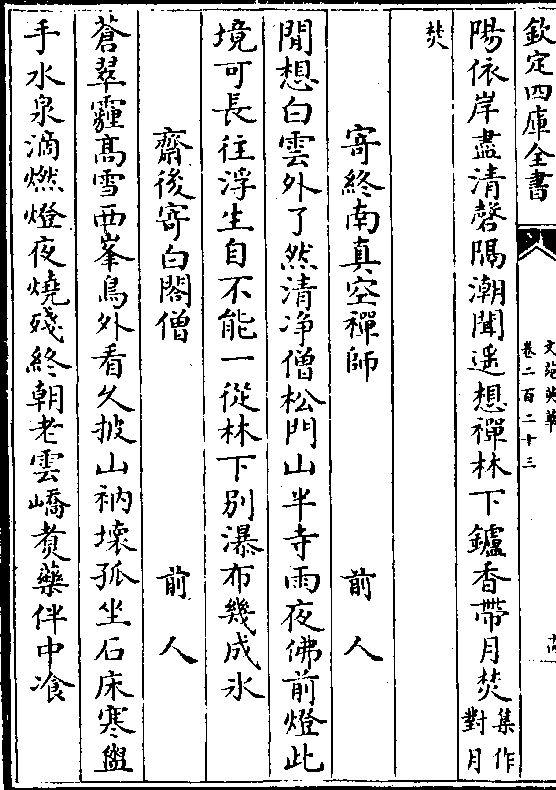 欽定四庫全書
文苑英華
卷二百二十三
陽依岸盡清磬隔潮聞遥想禪林下鑪香帶月焚集作對月
焚
寄終南真空禪師 前人
閒想白雲外了然清净僧松門山半寺雨夜佛前燈此
境可長往浮生自不能一從林下別瀑布幾成氷
齋後寄白閣僧 前人
蒼翠霾髙雪西峯鳥外看久披山衲壞孤坐石床寒盥
手水泉滴燃燈夜燒殘終朝老雲嶠煑藥伴中飡